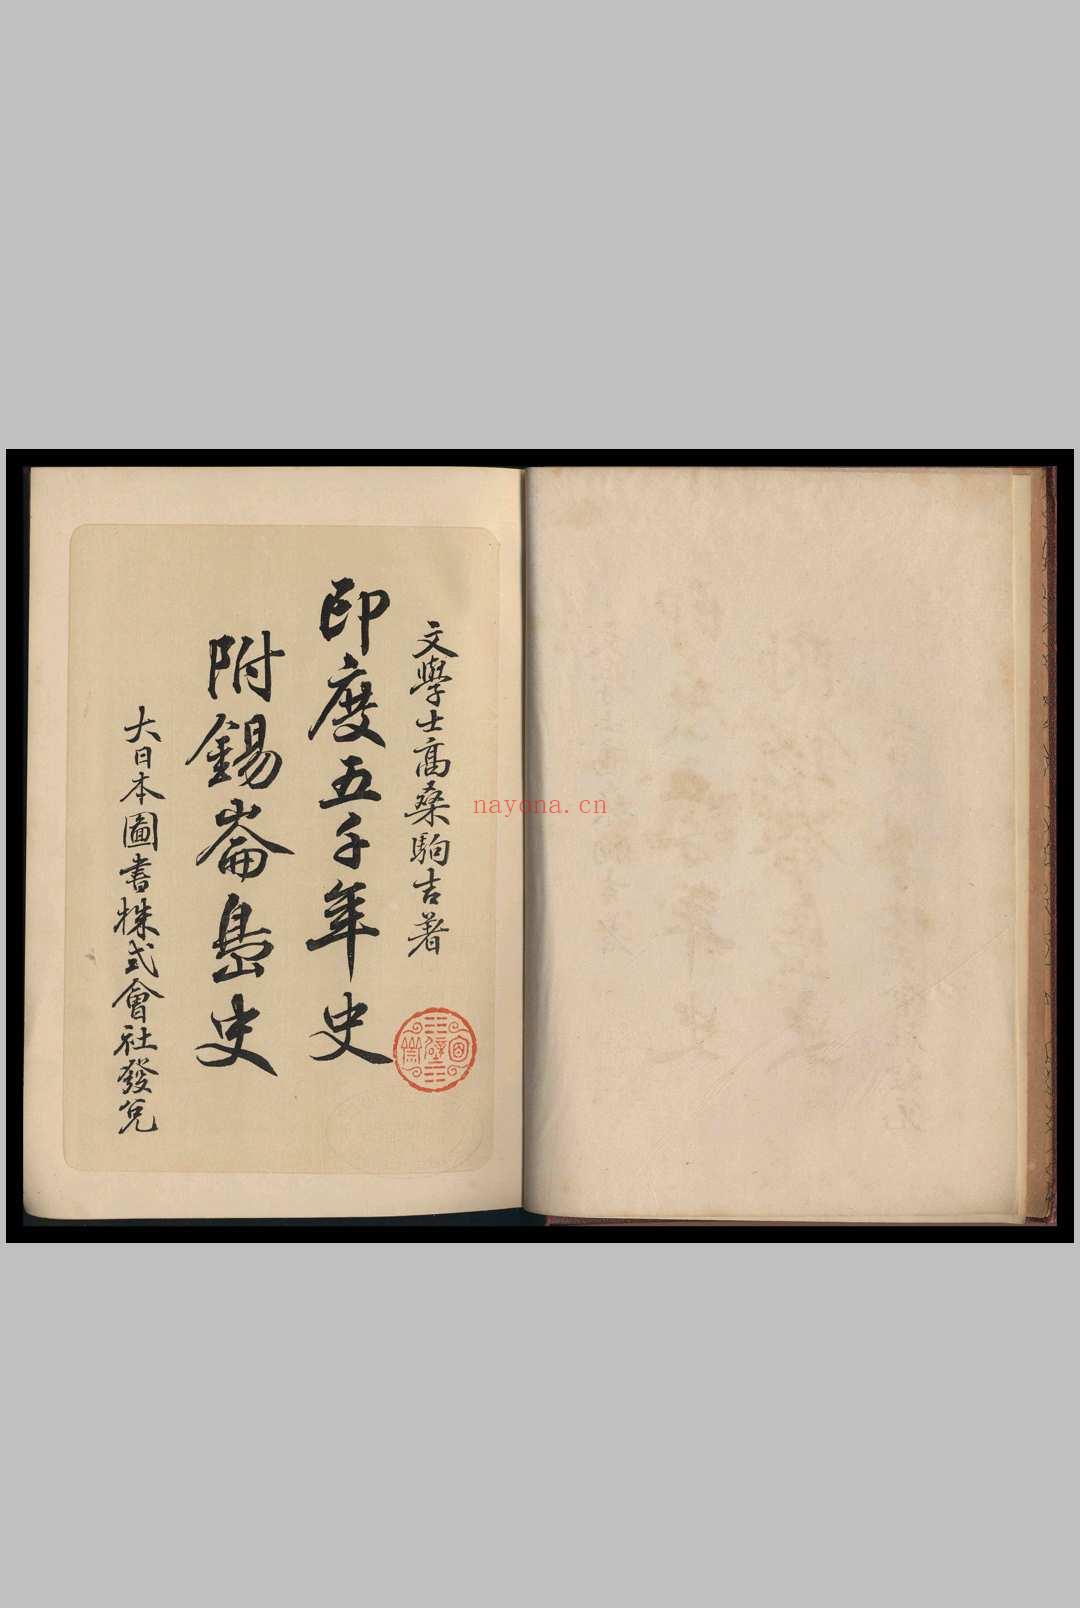 文學士高桑駒吉著
印度五千年史
附錫崙島史
大日本圖書株式會社發兌
nayona.cn